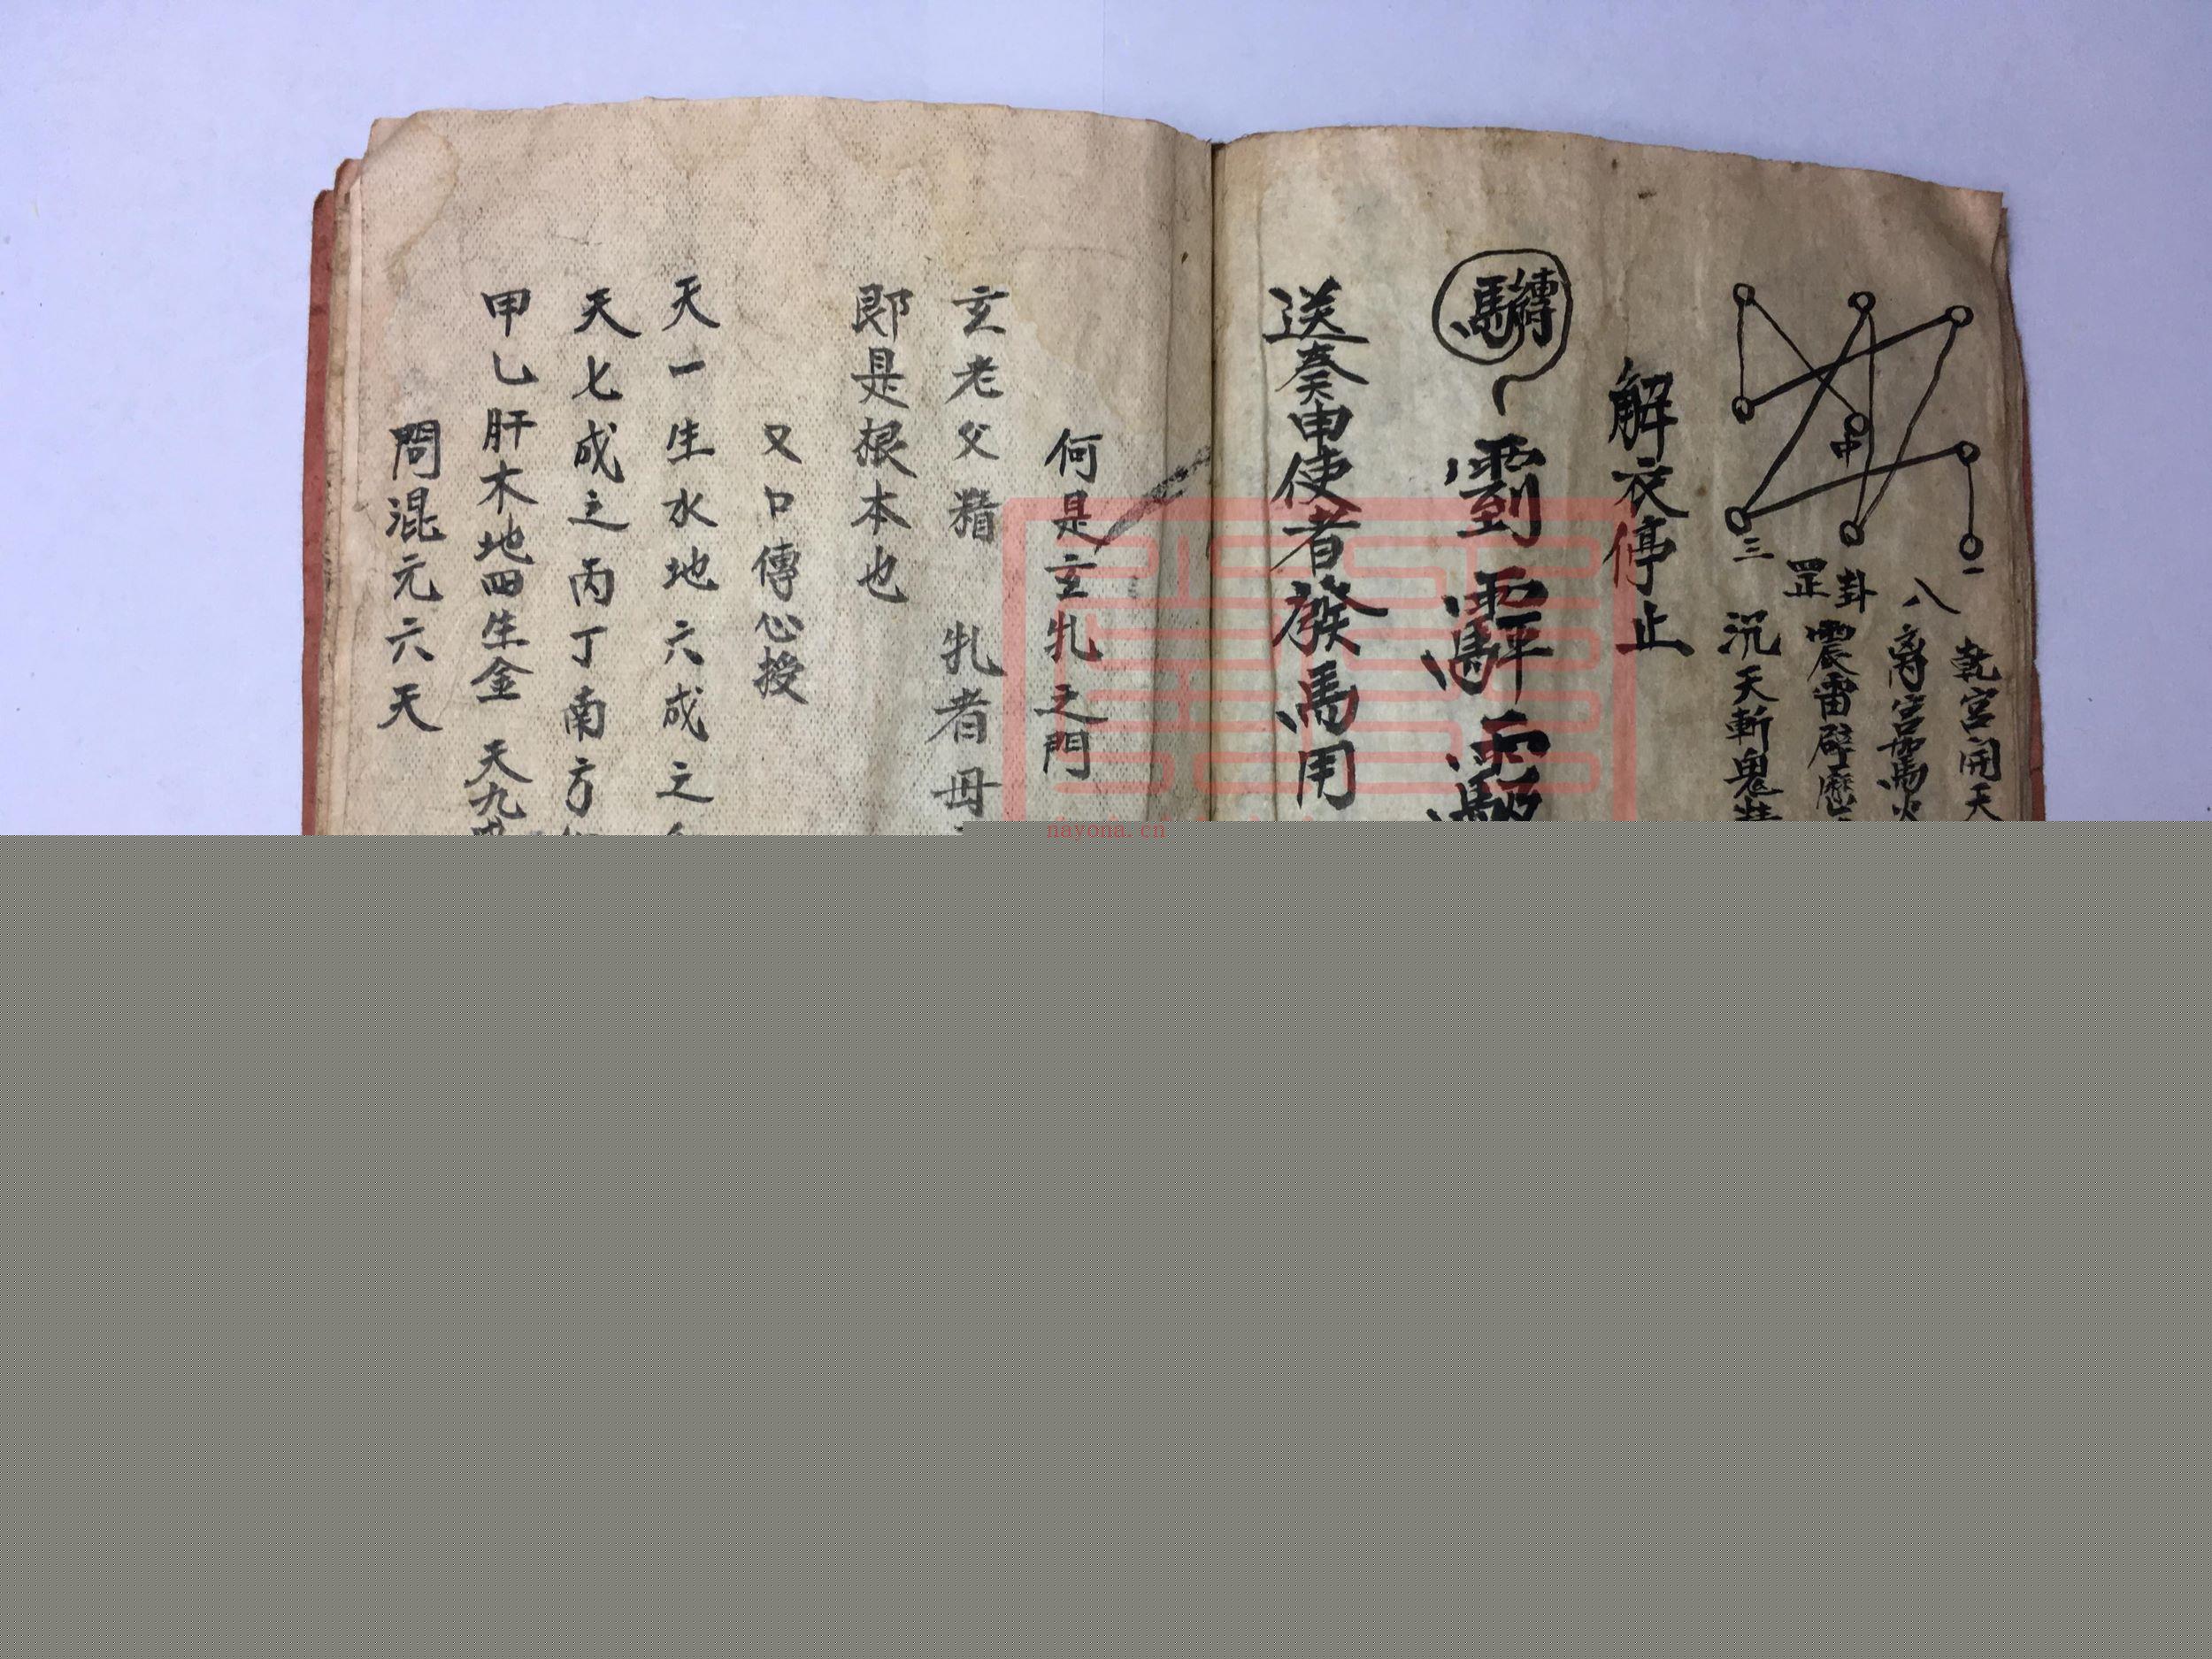 一
三
中
八
卦
罡
乾宮開天
離宮
震雷霹
沉天斬鬼
解衣停止
送奏申使者發馬用
何是玄牝之門
玄老父精 牝者母
即是根本也
又口傳心授
天一生水地六成之
天七成之丙丁南方
甲乙肝木地四生金 天九
問混元六天
nayona.cn